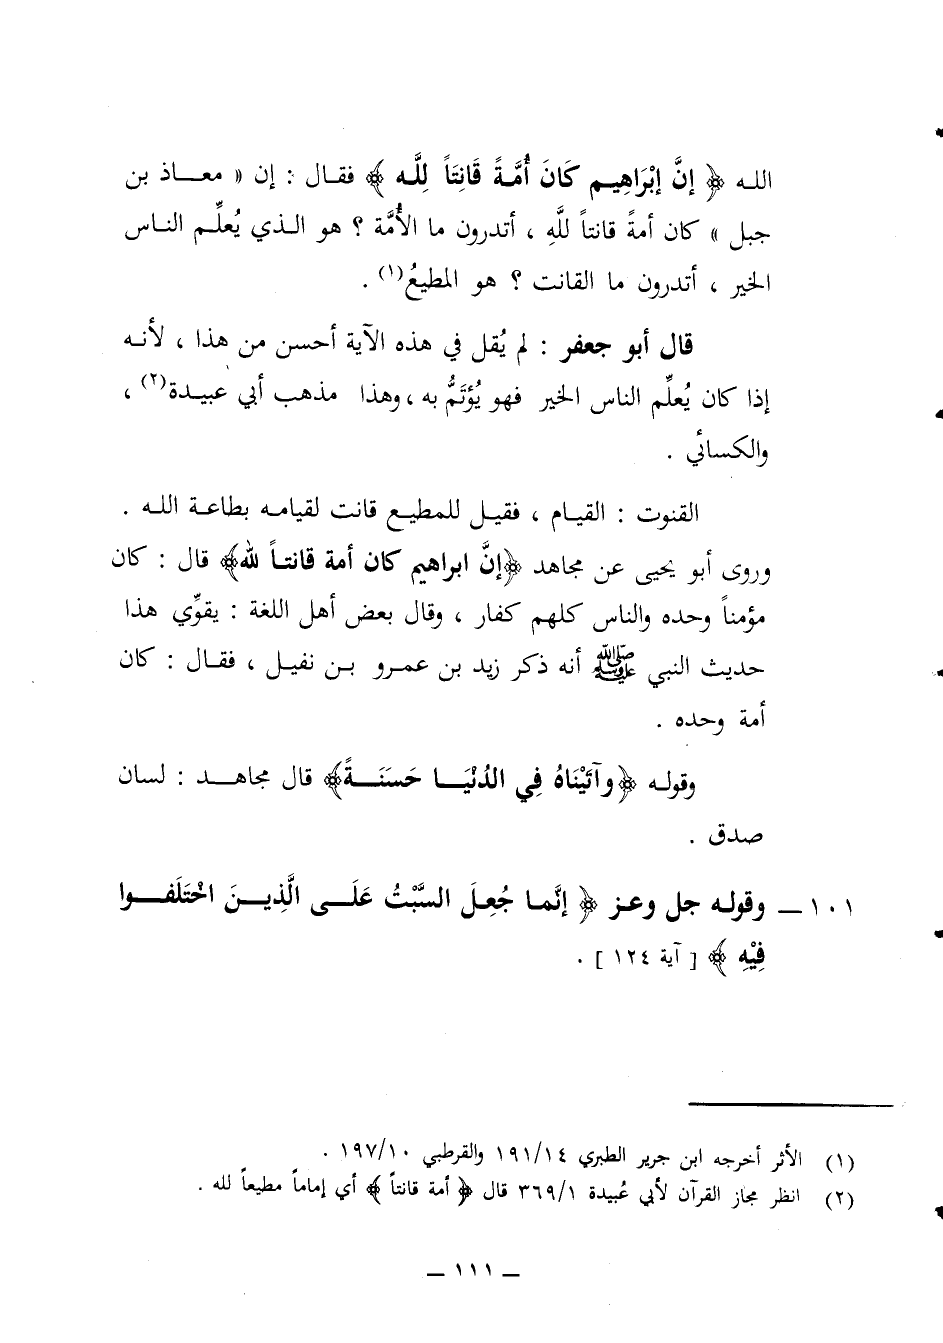 الله ﴿ إنَّ إبْرَاهِيم كَانَ أُمَّةً قَانتَاً لِلَّه ﴾ فقال : إن « معاذ بن
جبل » كان أمةً قانتاً للَّهِ ، أتدرون ما الأُمَّة ؟ هو الذي يُعلِّم الناس
الخير ، أتدرون ما القانت ؟ هو المطيعُ(١) .
قال أبو جعفر : لم يُقل في هذه الآية أحسن من هذا ، لأنه
إذا كان يُعلِّم الناس الخير فهو يُؤتَمُّ به ، وهذا مذهب أبي عبيدة(٢) ،
والكسائي .
القنوت : القيام ، فقيل للمطيع قانت لقيامه بطاعة الله .
وروى أبو يحيى عن مجاهد ﴿إنَّ ابراهيم كان أمة قانتاً لله﴾ قال : كان
مؤمناً وحده والناس كلهم كفار ، وقال بعض أهل اللغة : يقوِّي هذا
حديث النبي ﷺ أنه ذكر زيد بن عمرو بن نفيل ، فقال : كان
أمة وحده .
وقوله ﴿وآتَيْنَاهُ فِي الدُنْيَا حَسَنَةً﴾ قال مجاهد : لسان
صدق .
١٠١ ــ وقوله جل وعز ﴿ إنَّما جُعِلَ السَّبْتُ عَلَى الَّذِينَ اخْتَلَفوا
فِيْهِ ﴾ [ آية ١٢٤ ] .
(١) الأثر أخرجه ابن جرير الطبري ١٩١/١٤ والقرطبي ١٩٧/١٠ .
(٢) انظر مجاز القرآن لأبي عُبيدة ٣٦٩/١ قال ﴿ أمة قانتاً ﴾ أي إماماً مطيعاً لله .
ــ ١١١ ــ